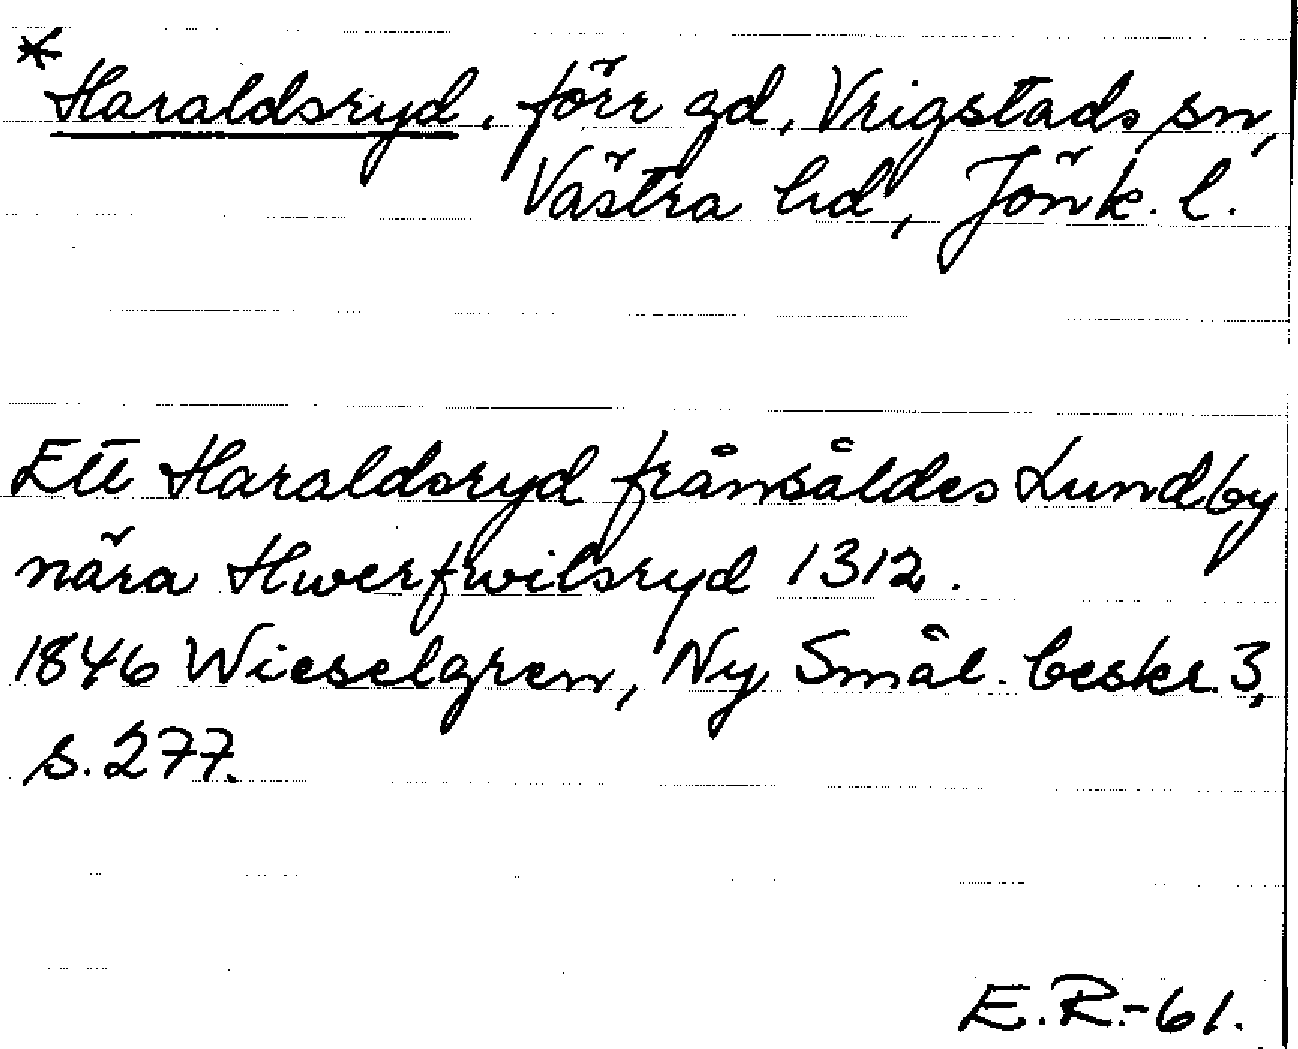 * Haraldsryd, förr gd, Vrigstads sn,
Västra hd, Jönk. l.
Ett Haraldsryd frånsåldes Lundby
nära Hwerfwilsryd 1312.
1846 Wieselgren, Ny Smål. beskr. 3,
s. 277.
E.R.-61.